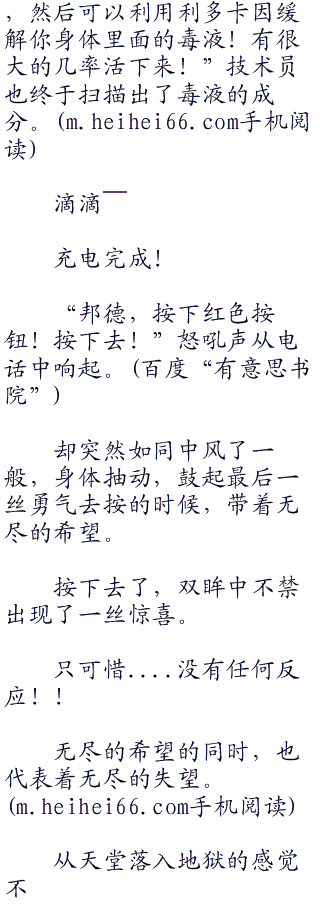 ，然后可以利用利多卡因缓
解你身体里面的毒液！有很
大的几率活下来！”技术员
也终于扫描出了毒液的成
分。(m.heihei66.com手机阅
读)
滴滴——
充电完成！
“邦德，按下红色按
钮！按下去！”怒吼声从电
话中响起。(百度“有意思书
院”)
却突然如同中风了一
般，身体抽动，鼓起最后一
丝勇气去按的时候，带着无
尽的希望。
按下去了，双眸中不禁
出现了一丝惊喜。
只可惜....没有任何反
应！！
无尽的希望的同时，也
代表着无尽的失望。
(m.heihei66.com手机阅读)
从天堂落入地狱的感觉
不